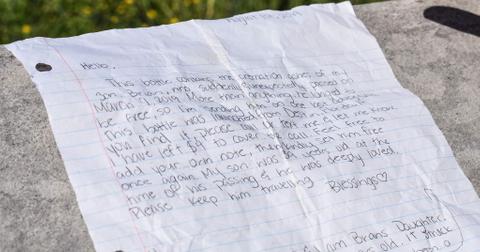 August 2019
Hello,
This bottle contains the cremation ashes of my
son Brian, who suddenly & unexpectedly passed on
March 9 2019. More than anything, he longed to
be free, so I'm sending him on one last
This bottle was launched from Destin
you find it please call or text me & let me know
I have left $4 to cover the call. Feel free to
add your own note, then kindly set him free
once again. My son was 39 years old at the
time of his passing & he was deeply loved.
Please keep him travelling. Blessings♡
I am Brians Daughter.
old. It struck
on a